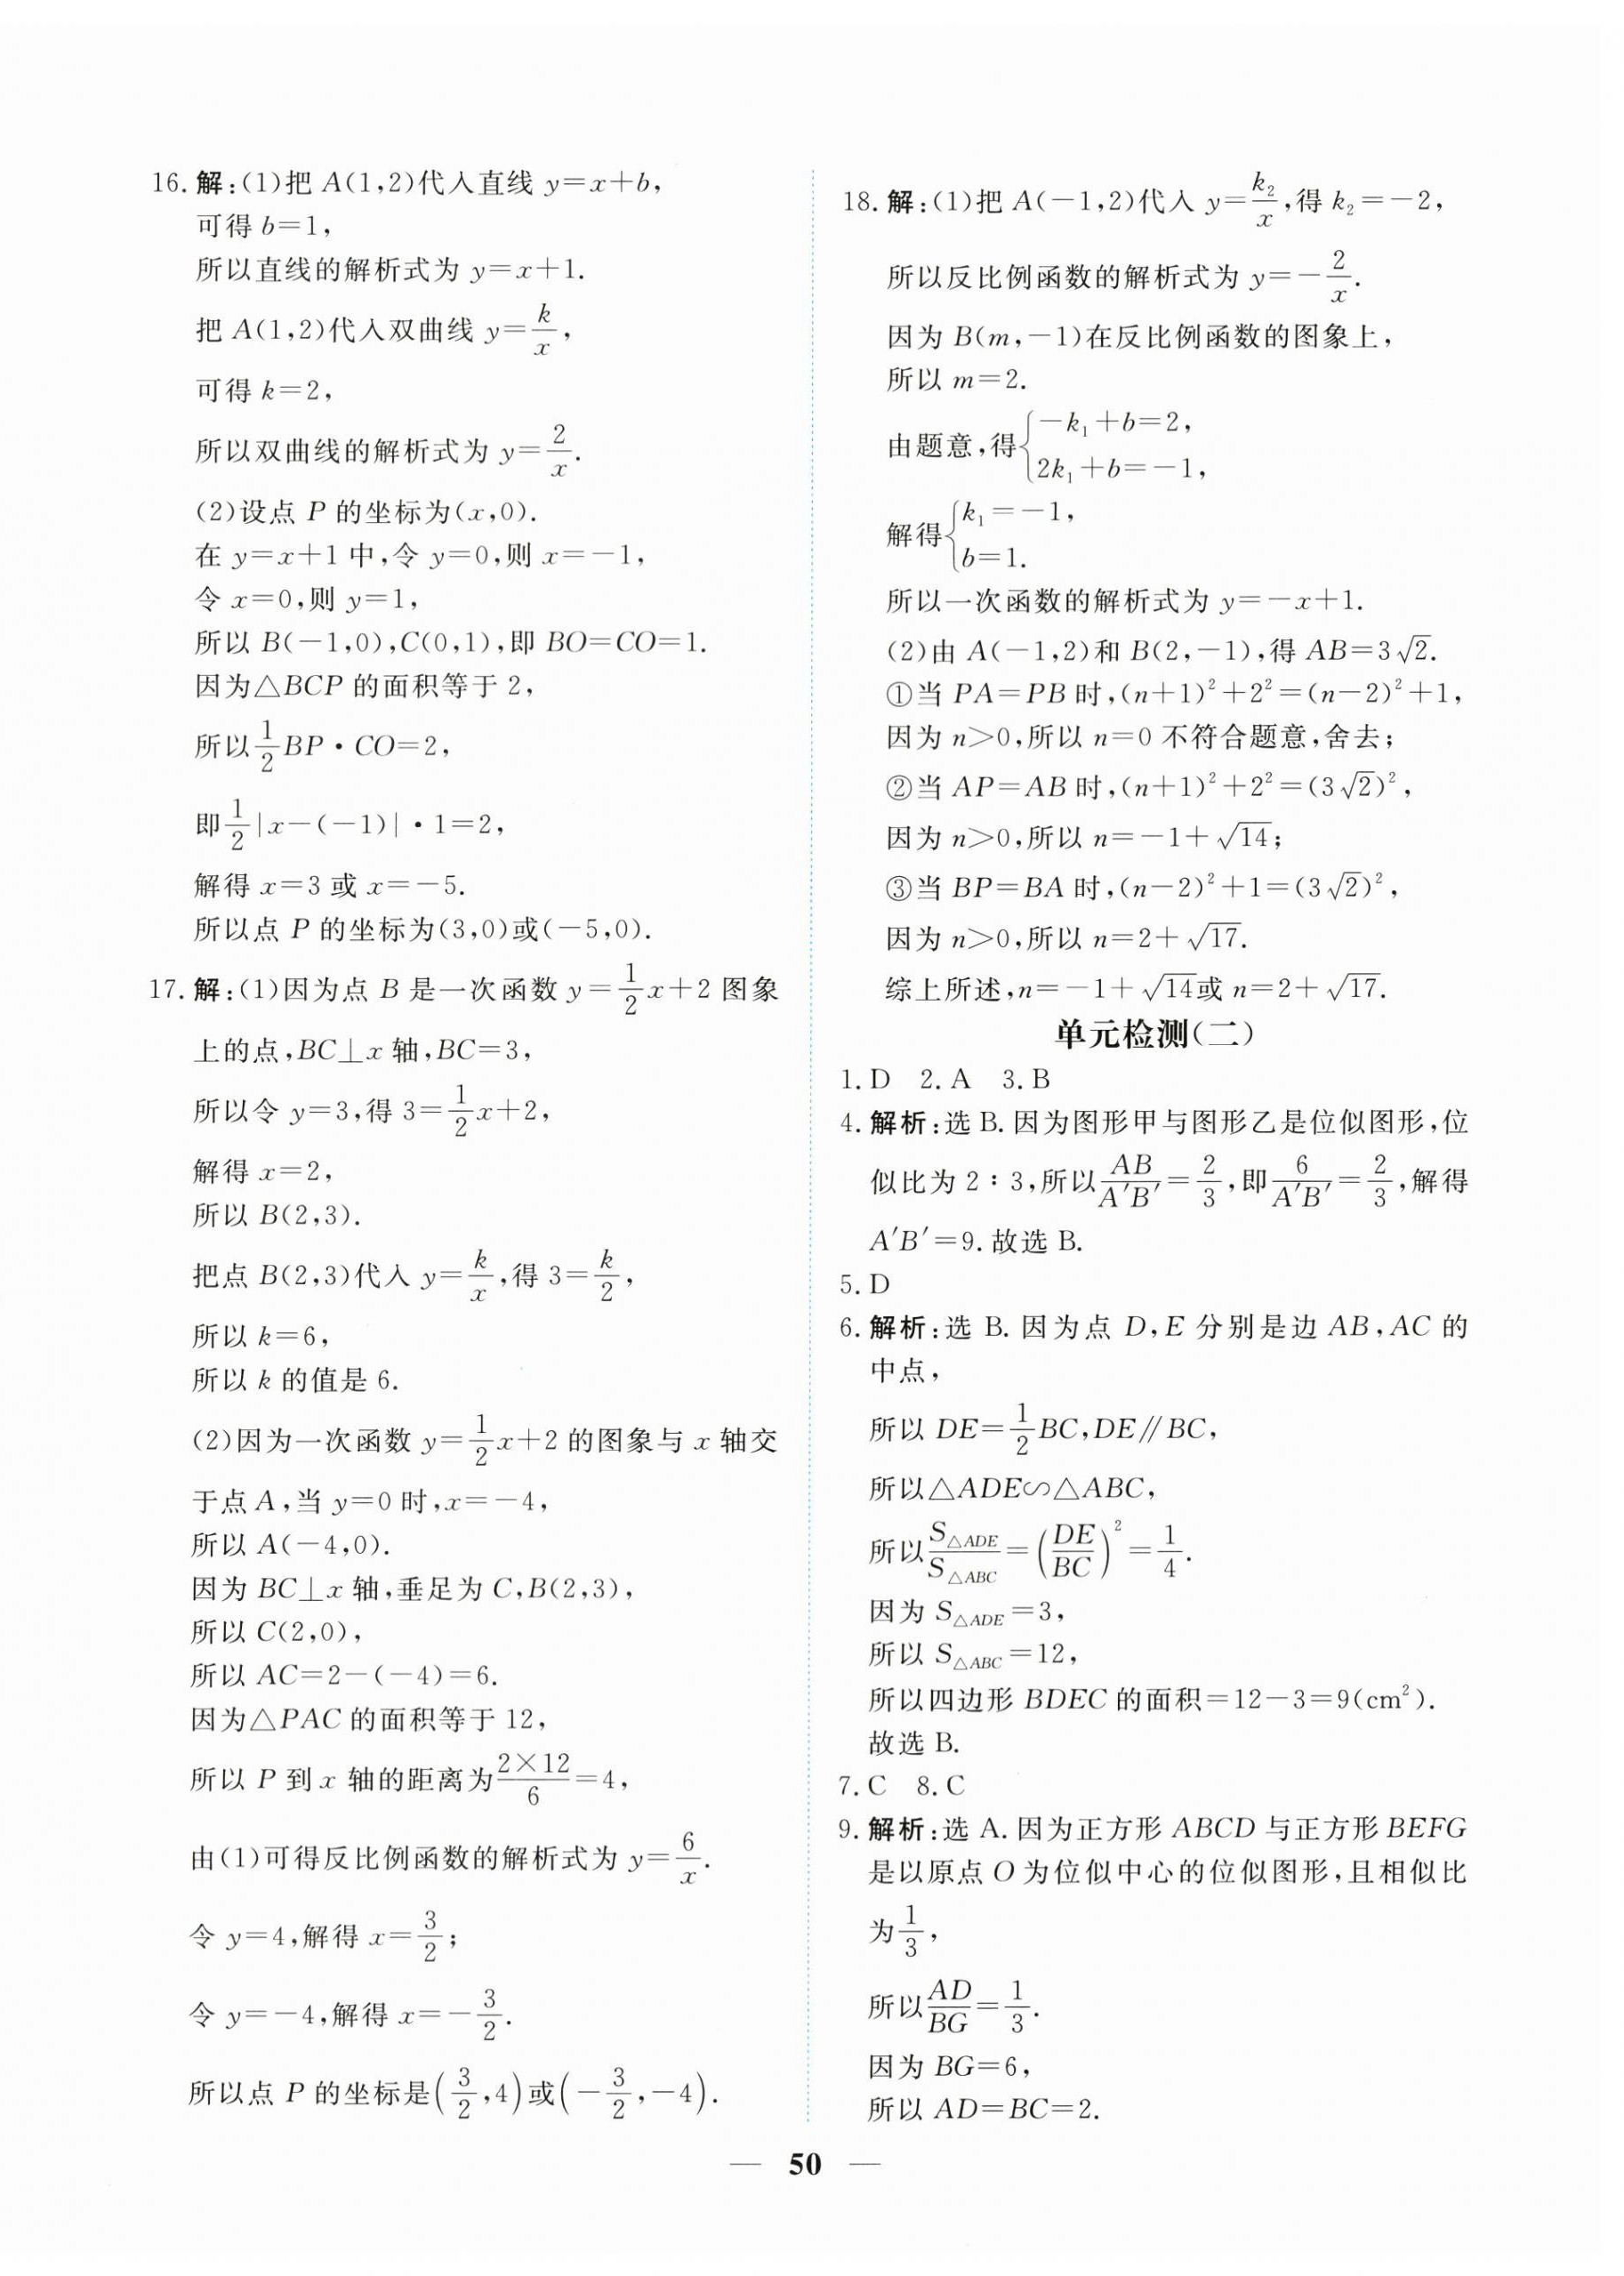 16. 解:(1)把 A(1,2)代入直线 y=x+b,
可得 b=1,
所以直线的解析式为 y=x+1.
把 A(1,2)代入双曲线 y=k/x,
可得 k=2,
所以双曲线的解析式为 y=2/x.
(2)设点 P 的坐标为(x,0).
在 y=x+1 中,令 y=0,则 x=-1,
令 x=0,则 y=1,
所以 B(-1,0),C(0,1),即 BO=CO=1.
因为△BCP 的面积等于 2,
所以1/2BP·CO=2,
即1/2|x-(-1)|·1=2,
解得 x=3 或 x=-5.
所以点 P 的坐标为(3,0)或(-5,0).
17. 解:(1)因为点 B 是一次函数 y=1/2x+2 图象
上的点,BC⊥x 轴,BC=3,
所以令 y=3,得 3=1/2x+2,
解得 x=2,
所以 B(2,3).
把点 B(2,3)代入 y=k/x,得 3=k/2,
所以 k=6,
所以 k 的值是 6.
(2)因为一次函数 y=1/2x+2 的图象与 x 轴交
于点 A,当 y=0 时,x=-4,
所以 A(-4,0).
因为 BC⊥x 轴,垂足为 C,B(2,3),
所以 C(2,0),
所以 AC=2-(-4)=6.
因为△PAC 的面积等于 12,
所以 P 到 x 轴的距离为2×12/6=4,
由(1)可得反比例函数的解析式为 y=6/x.
令 y=4,解得 x=3/2;
令 y=-4,解得 x=-3/2.
所以点 P 的坐标是(3/2,4)或(-3/2,-4).
18. 解:(1)把 A(-1,2)代入 y=k₂/x,得 k₂=-2,
所以反比例函数的解析式为 y=-2/x.
因为 B(m,-1)在反比例函数的图象上,
所以 m=2.
由题意,得{-k₁+b=2,
2k₁+b=-1,
解得{k₁=-1,
b=1.
所以一次函数的解析式为 y=-x+1.
(2)由 A(-1,2)和 B(2,-1),得 AB=3√2.
①当 PA=PB 时,(n+1)²+2²=(n-2)²+1,
因为 n>0,所以 n=0 不符合题意,舍去;
②当 AP=AB 时,(n+1)²+2²=(3√2)²,
因为 n>0,所以 n=-1+√14;
③当 BP=BA 时,(n-2)²+1=(3√2)²,
因为 n>0,所以 n=2+√17.
综上所述,n=-1+√14或 n=2+√17.
单元检测(二)
1. D 2. A 3. B
4. 解析:选 B. 因为图形甲与图形乙是位似图形,位
似比为 2∶3,所以AB/A′B′=2/3,即6/A′B′=2/3,解得
A′B′=9. 故选 B.
5. D
6. 解析:选 B. 因为点 D,E 分别是边 AB,AC 的
中点,
所以 DE=1/2BC,DE∥BC,
所以△ADE∽△ABC,
所以S△ADE/S△ABC=(DE/BC)²=1/4.
因为 S△ADE=3,
所以 S△ABC=12,
所以四边形 BDEC 的面积=12-3=9(cm²).
故选 B.
7. C 8. C
9. 解析:选 A. 因为正方形 ABCD 与正方形 BEFG
是以原点 O 为位似中心的位似图形,且相似比
为1/3,
所以AD/BG=1/3.
因为 BG=6,
所以 AD=BC=2.
— 50 —